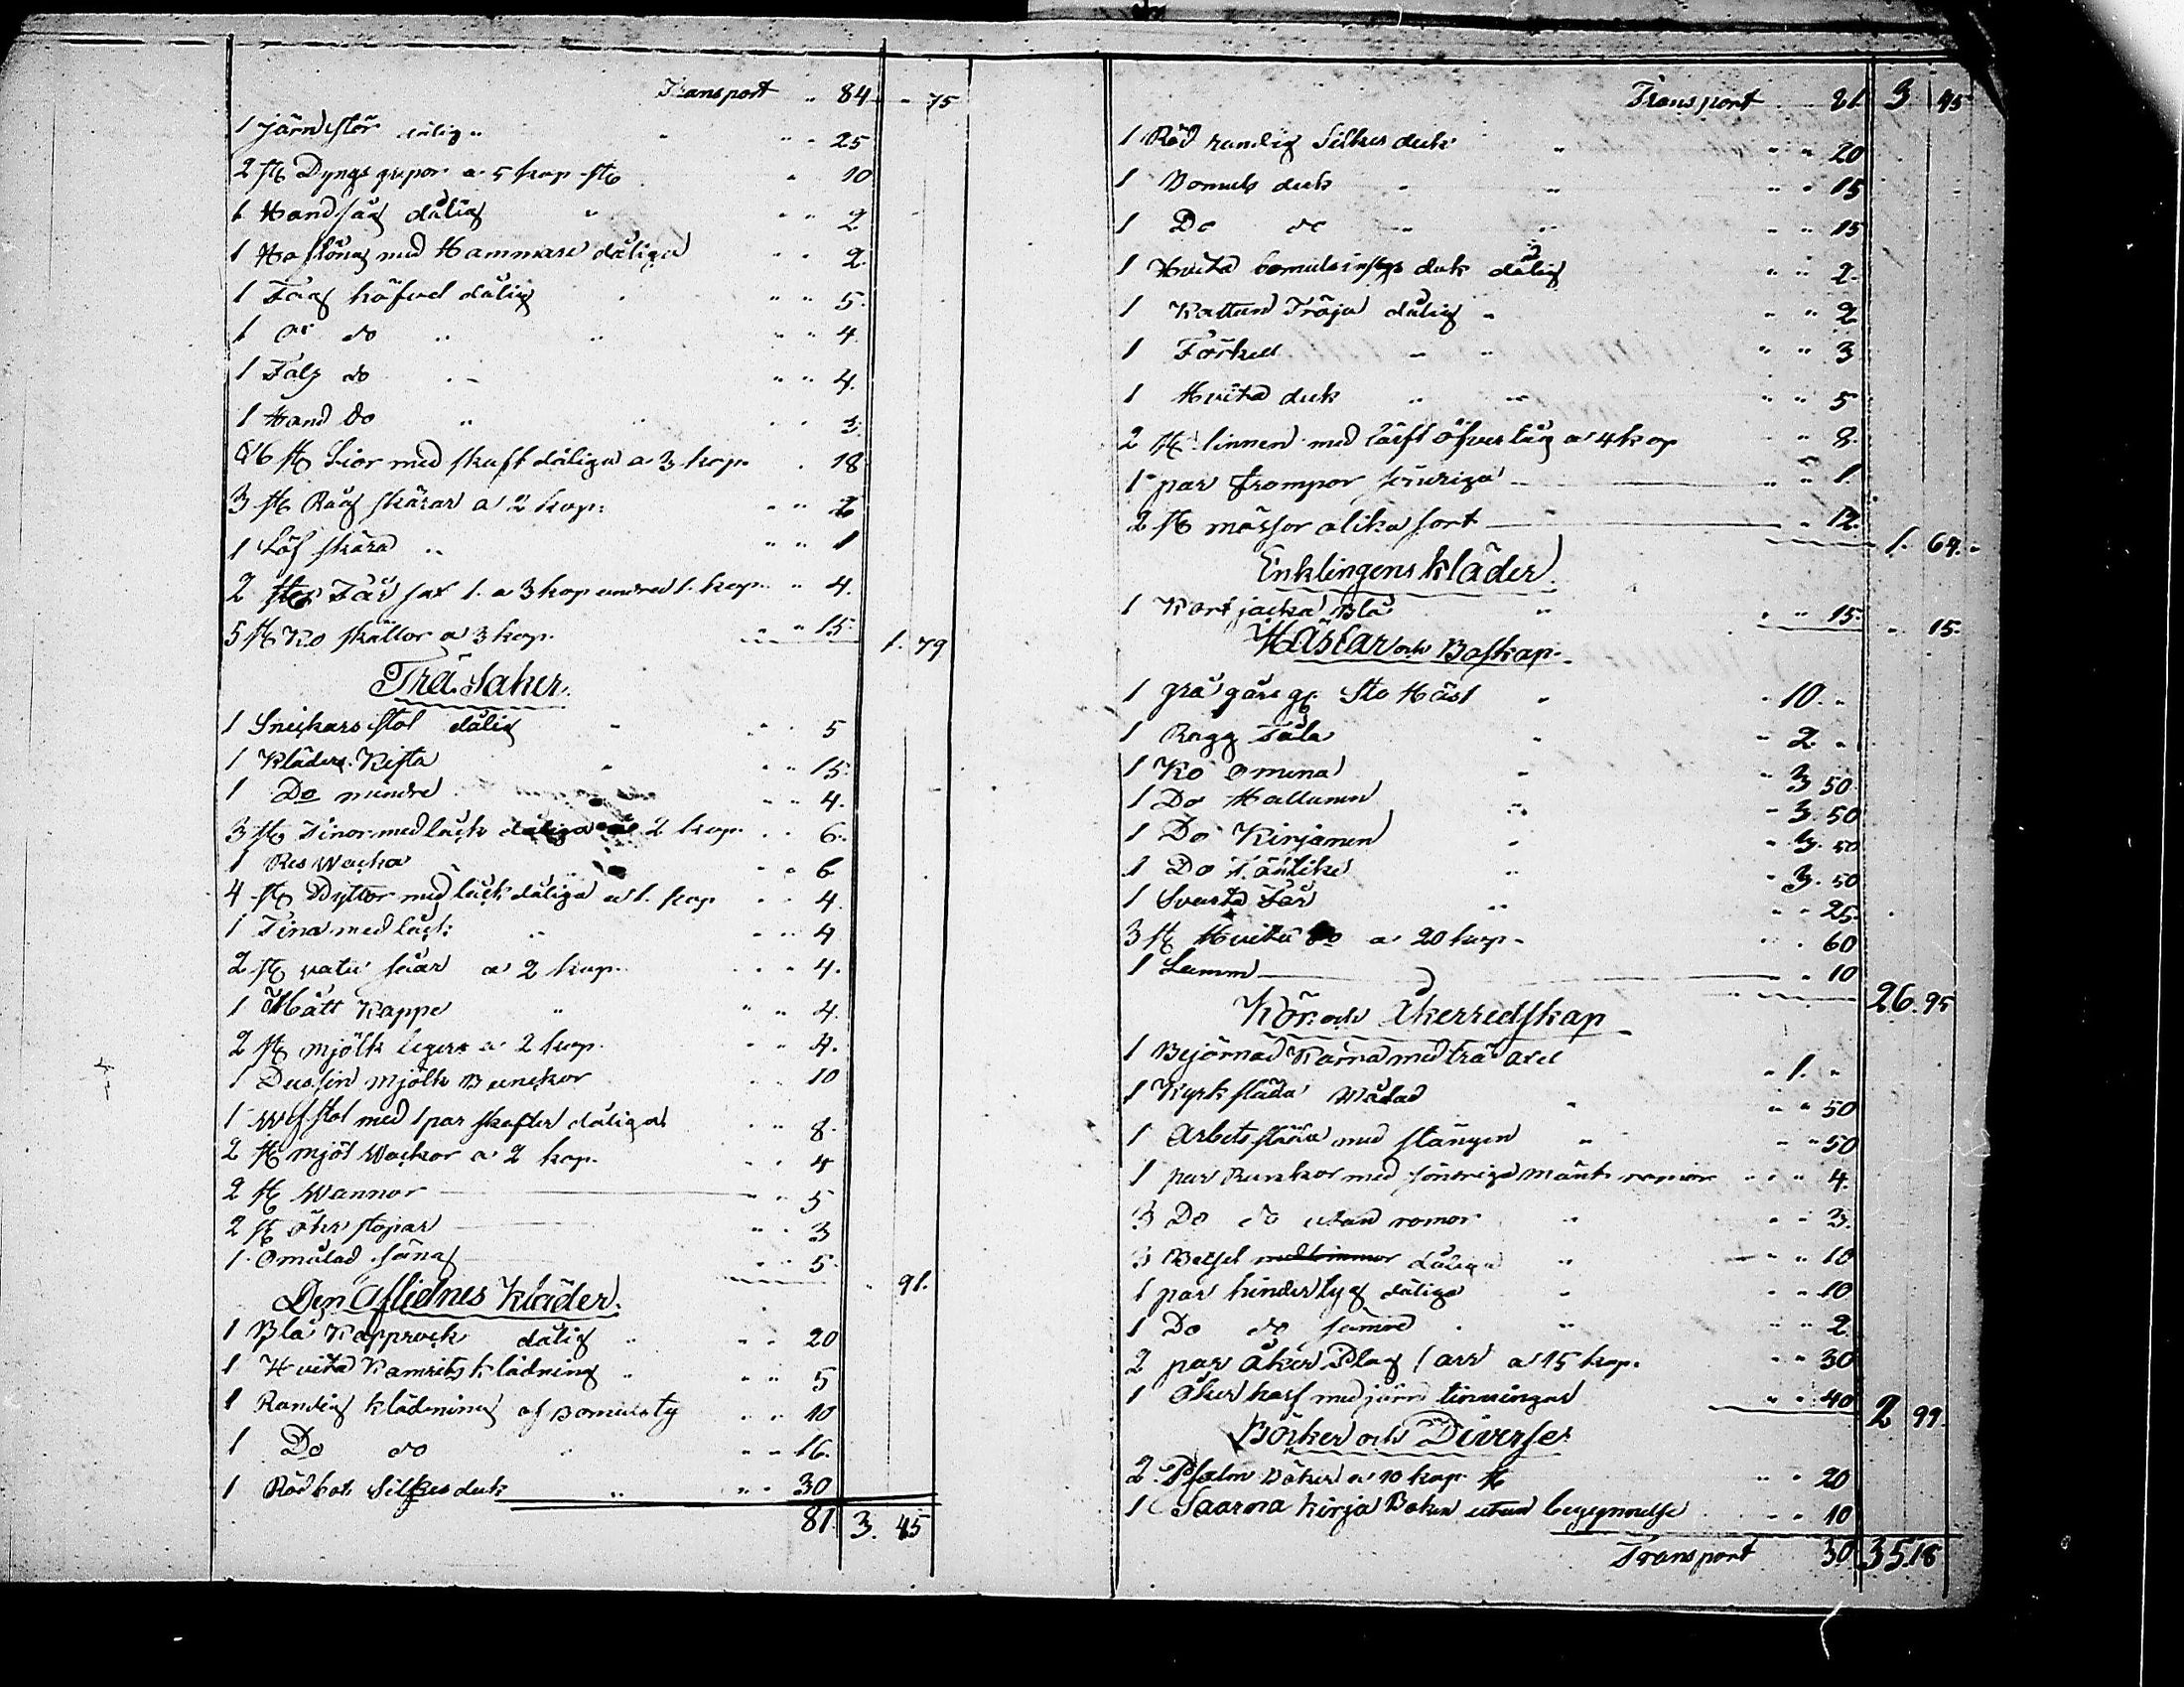 Transport " 84 " 75
1 Järn stör dålig " " " 25
2 st Dyngs grepor a 5 kop st " 10
1 Handsåg dålig " " " 2
1 med Hammare dåliga " " 2
1 Tåg häfvel dålig " " 5
1 do " " " " 4
1 Fals do " " " 4
1 Hand Do " " " 3
6 st Lior med skaft dåliga a 3 kop. " 18
3 st Råg skäror a 2 kop. " " 6
1 Löf skära " " " 1
2 st Får sax 1. a 3 kop andra 1. kop. " 4.
5 st Ko skällor a 3 kop. " " 15. 1. 79
Trä Saker.
1 Sneckars stol dålig " " 5
1 Kläders Kista " " " 15.
1 Do mindre " " 4.
3 st Tinor med låck dåliga a 2 kop. " " 6.
1 Res Wacka " " 6
4 st Byttor med låck dåliga a 1. kop " " 4.
1 Tina med låck " " " 4
2 st vatn såar a 2 kop. " " 4.
1 Mått Kappe " " " 4.
2 st mjölk legere a 2 kop. " " 4.
1 Dussin mjölk Bunckor " " 10
1 Wefstol med 1 par skafter dåliga " " 8.
2 st mjöl Wackor a 2 kop. " " 4
2 st Wannor " " 5
2 st stopar " " 3
1. Omålad säng " " 5. " 91.
Den Aflidnes Kläder.
1 Blå Kapprock dålig " " " 20
1 Hvita Kamrits klädning " " " 5
1 Randig klädning af Bomulsty " " 10
1 Do do " " " 16.
1 Silkes duk " " " 30
81. 3. 45
Transport 81 3 45
1 Röd randig Silkes duk " " " 20
1 Bomuls duk " " " " 15
1 Do do " " " " 15
1 Hvita duk dålig " " 2.
1 Kattun Tröja dålig " " " 2
1 Förkel " " " " 3
1 Hvita duk " " " " 5
2 st linnen med lärft öfverlåg a 4 kop " " 8.
1 par strompor söndriga " " 1.
2 st mössor olika sort " 12. 1. 64.
Enklingens kläder
1 Kort jacka Blå " " " 15. " 15.
Hästar och Boskap.
1 grå Sto Häst " " 10. "
1 Ragg Fåla " " 2. "
1 Ko Omena " " 3 50
1 Do Hallunen " " 3. 50
1 Do Kirjamen " " 3. 50
1 Do " " 3. 50
1 Svarta Får " " " 25.
3 st Hvita Do a 20 kop. " " 60
1 Lamm " 10 26. 95
Kör och Åkerredskap
1 Kärra med trä axel " 1. "
1 Kyrk släda Målad " " " 50
1 Arbets släda med stången " " " 50
1 par Runkor med söndriga " " " 4.
3 Do do utan romor " " " 3.
3 Betsel dåliga " " " 10
1 par hinder tyg dåliga " " " 10
1 Do do sämre " " " " 2.
2 par åker Plog a 15 kop. " " 30
1 Åker harf med järn tinningar " " 40 2 99.
Böcker och Diverse.
2. Psalm Böker a 10 kop st " " 20
1 Saarna kirja Boken utan begynnelse " " 10
Transport 30 35.18